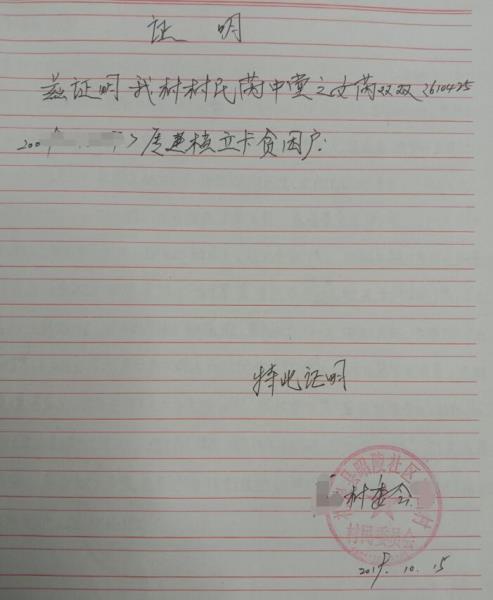 证 明
兹证明我村村民蔺中堂之女蔺双双(610425
200 )属建档立卡贫困户.
特此证明
县昭陵社区 村
村委会
村民委员会
2019.10.15